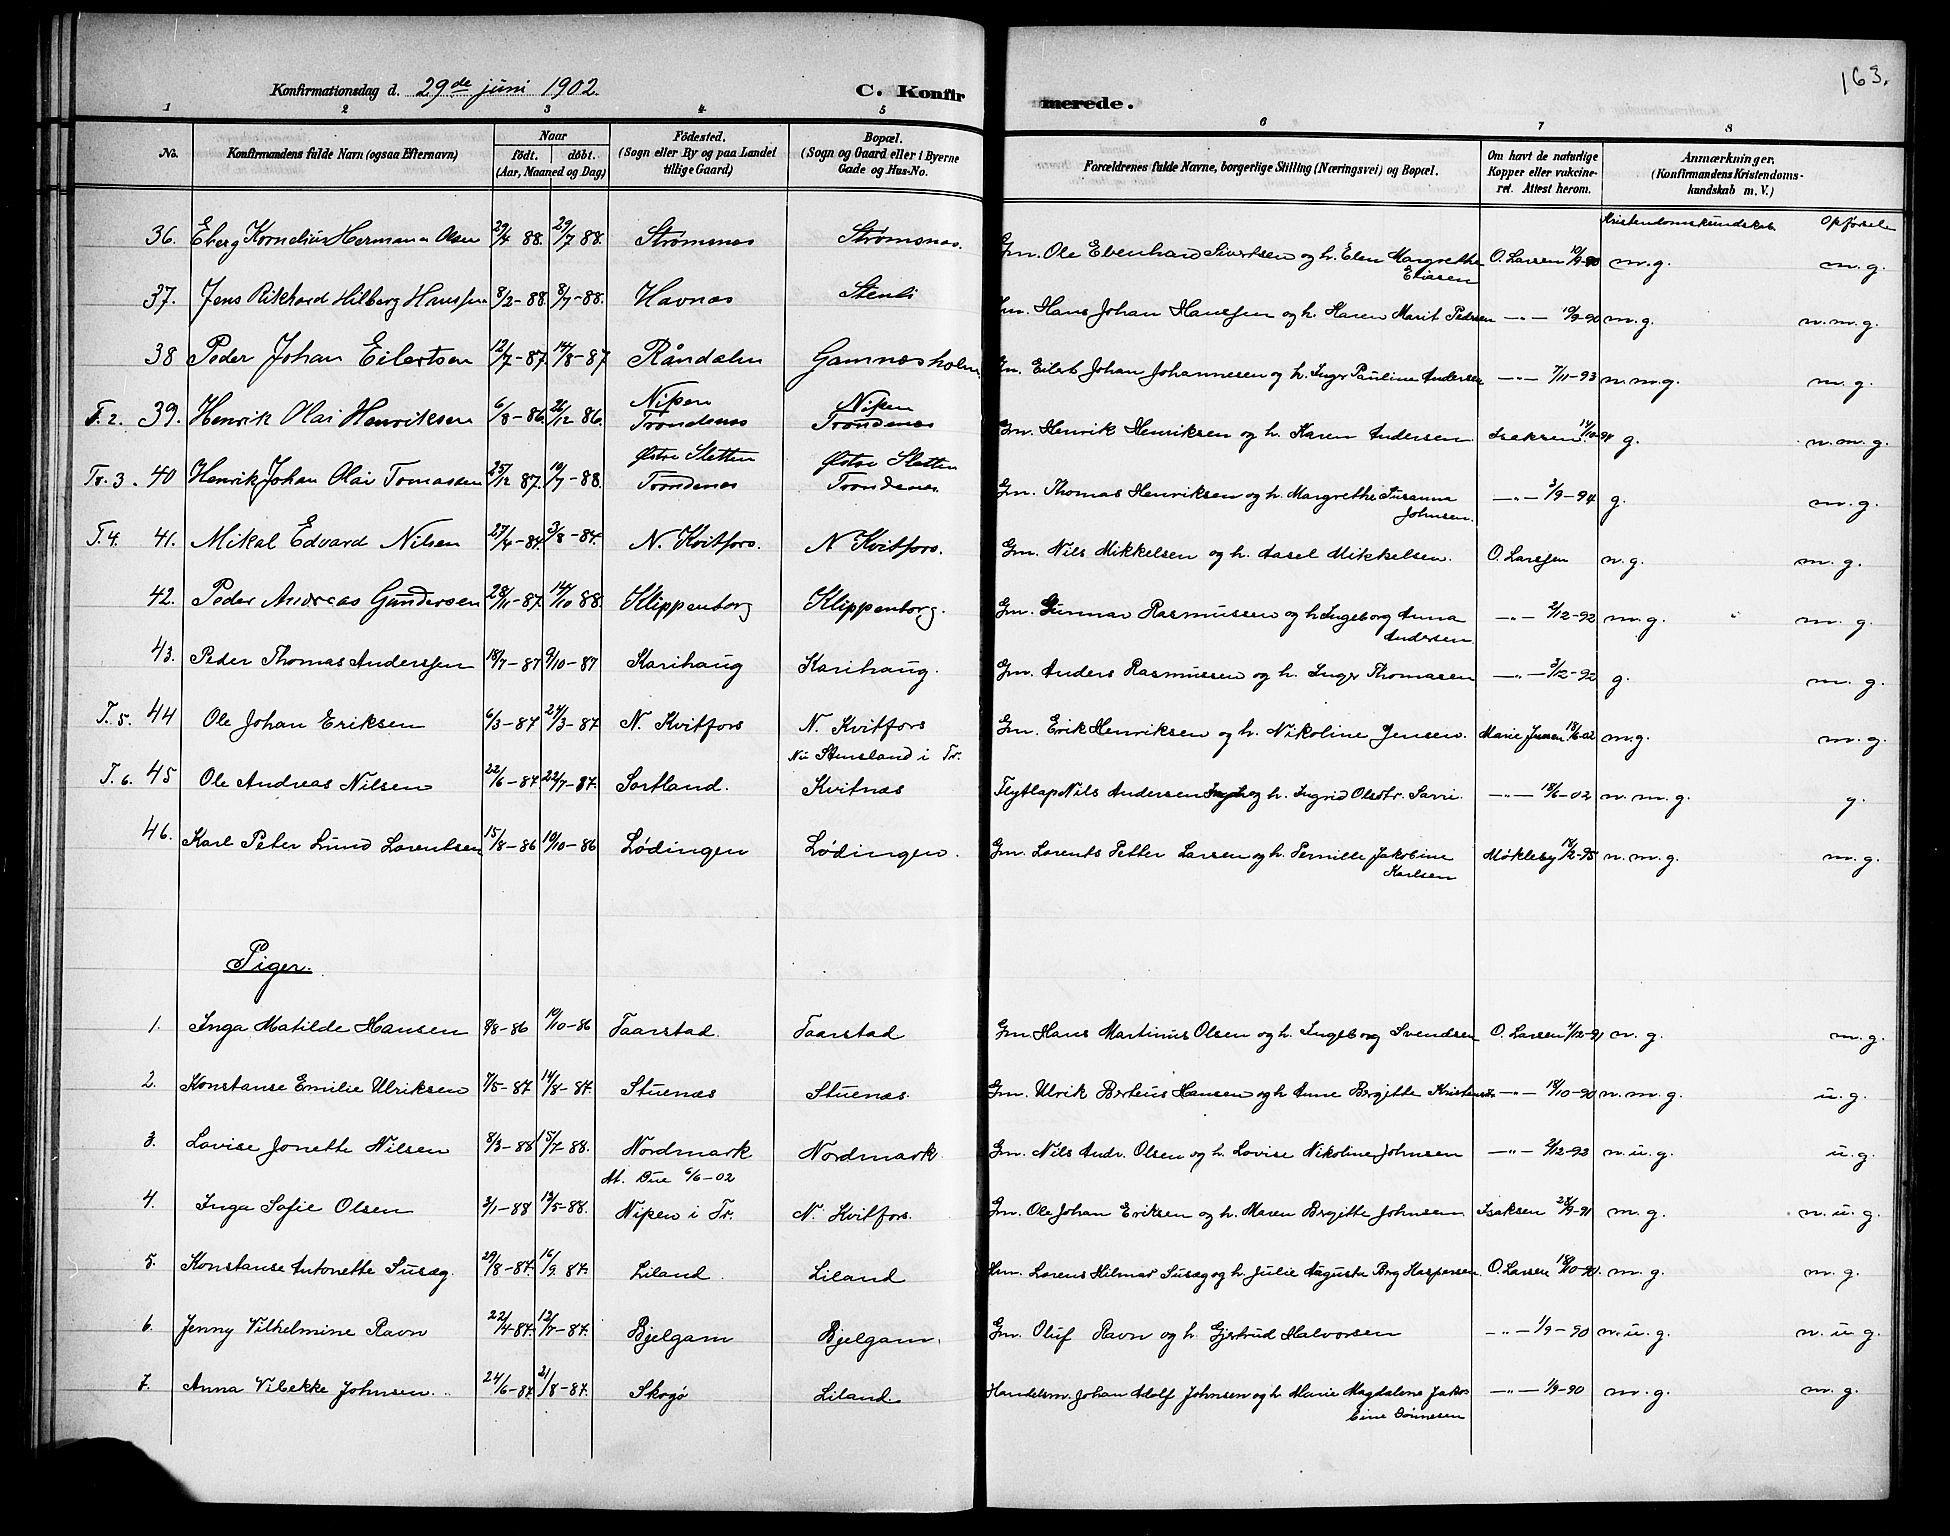 Konfirmationsdag d. 29de juni 1902. C. Konfirmerede. 163.
1 2 3 4 5 6 7 8
No. Konfirmandens fulde Navn (ogsaa Efternavn) Naar født. døbt. (Aar, Maaned og Dag) Fødested. (Sogn eller By og paa Landet tillige Gaard) Bopæl. (Sogn og Gaard eller i Byerne Gade og Hus-No. Forældrenes fulde Navne, borgerlige Stilling (Næringsvei) og Bopæl. Om havt de naturlige Kopper eller vakcineret. Attest herom. Anmærkninger. (Konfirmandens Kristendomskundskab m. V.)
Kristendomskundskab Opførsel
36. Eberg Kornelius Hermann Olsen 29/4 88. 29/7 88. Strømsnæs Strømsnæs. Gm. Ole Ebenhard Sivertsen og h. Elen Margrethe Eliasen O. Larsen 10/9-90 m.g. m.g.
37. Jens Rikhard Hilberg Hanssen 8/2-88. 8/7-88. Havnæs Stenli Gm. Hans Johan Hanssen og h. Karen Marit Pedersen —"— 10/9-90 m.g. n.m.g.
38 Peder Johan Eilertsen 12/7-87. 14/8-87 Råndalen Gamnæsholm Gm. Eilert Johan Johannesen og h. Inger Pauline Andersen —"— 7/11-93 n.m.g. m.g.
T. 2. 39. Henrik Olai Henriksen 6/8-86. 26/12 86. Nipen Trondenæs Nipen Trondenæs Gm. Henrik Henriksen og h. Karen Andersen Isaksen 14/10-94 g. n.m.g.
Tr. 3. 40 Henrik Johan Olai Tomassen 25/12 87. 19/7-88. Østre Sletten Trondenæs Østre Sletten Trondenæs. Gm. Thomas Henriksen og h. Margrethe Susanna Johnsen. —"— 3/9-94 g. m.g.
T. 4. 41. Mikal Edvard Nilsen 27/4-84. 3/8-84. N. Kvitfors. N Kvitfors. Gm. Nils Mikkelsen og h. Aasel Mikkelsen. O. Larssen n.g. m.g.
42. Peder Andreas Gundersen 28/11-87. 14/10 88. Klippenborg Klippenborg. Gm. Gunnar Rasmussen og h. Ingeborg Anna Andersen —"— 2/12-92 m.g. m.g.
43. Peder Thomas Anderssen 18/7-87 9/10-87 Karihaug Karihaug. Gm. Anders Rasmussen og h. Inger Thomasen —"— 3/12-92 g. m.g.
T. 5. 44 Ole Johan Eriksen 6/3-87 27/3-87. N. Kvitfors N. Kvitfors Gm. Erik Henriksen og h. Nikoline Jensen. Marie Jensen 18/6-02 m.g. m.g.
Nu Stensland i Tr.
T. 6. 45 Ole Andreas Nilsen 22/6-87. 22/7-87. Sortland. Kvitnæs Flytlap Nils Andersen og h. Ingrid Olsdtr. Sarri. —"— 18/6-02 n.m.g. g.
46. Karl Peter Lund Lorentsen 15/8-86 10/10-86 Lødingen Lødingen. Gm. Lorents Petter Larsen og h. Pernille Jakobine Karlsen Møkleby 14/2-95 n.m.g. m.g.
Piger.
1. Inga Matilde Hansen 9/8-86 10/10-86 Taarstad. Taarstad Gm. Hans Martinus Olsen og h. Ingeborg Svendsen O. Larsen 4/12-91 n.g. m.g.
2. Konstanse Emilie Ulriksen 7/5-87. 14/8-87. Stuenæs Stuenæs. Gm. Ulrik Berteus Hansen og h. Anne Bergitte Kristensen —"— 18/10-90 n.m.g. u.g.
3. Lovise Jonette Nilsen 8/3-88 15/7-88. Nordmark Nordmark Gm. Nils Andr. Olsen og h. Lovise Nikoline Johnsen —"— 2/12-93 n.u.g. u.g.
At. Due 6/6-02
4. Inga Sofie Olsen 3/1-88 13/5-88. Nipen i Tr. N. Kvitfors. Gm. Ole Johan Eriksen og h. Maren Bergitte Johnsen Isaksen 28/9-91 m.g. n.u.g.
5. Konstanse Antonette Susæg. 29/8-87. 16/9. 87. Liland. Liland Hm. Lorens Hilmar Susæg og h. Julie Augusta Berg Kaspersen O. Larsen 18/10-91. m.g. m.g.
6. Jenny Vilhelmine Ravn 22/4-87. 12/7-87. Bjelgam Bjelgam. Gm. Oluf Ravn og h. Gjertrud Halvorsen —"— 1/9-90 n.u.g. n.u.g.
7. Anna Vibekke Johnsen. 24/6-87. 21/8-87. Skogø Liland Handelsm. Johan Adolf Johnsen og h. Marie Magdalena Jakobine Dønnesen —"— 1/9-90 m.g. m.g.